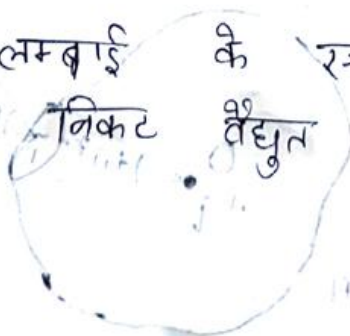 लम्बाई के
निकट वैद्युत